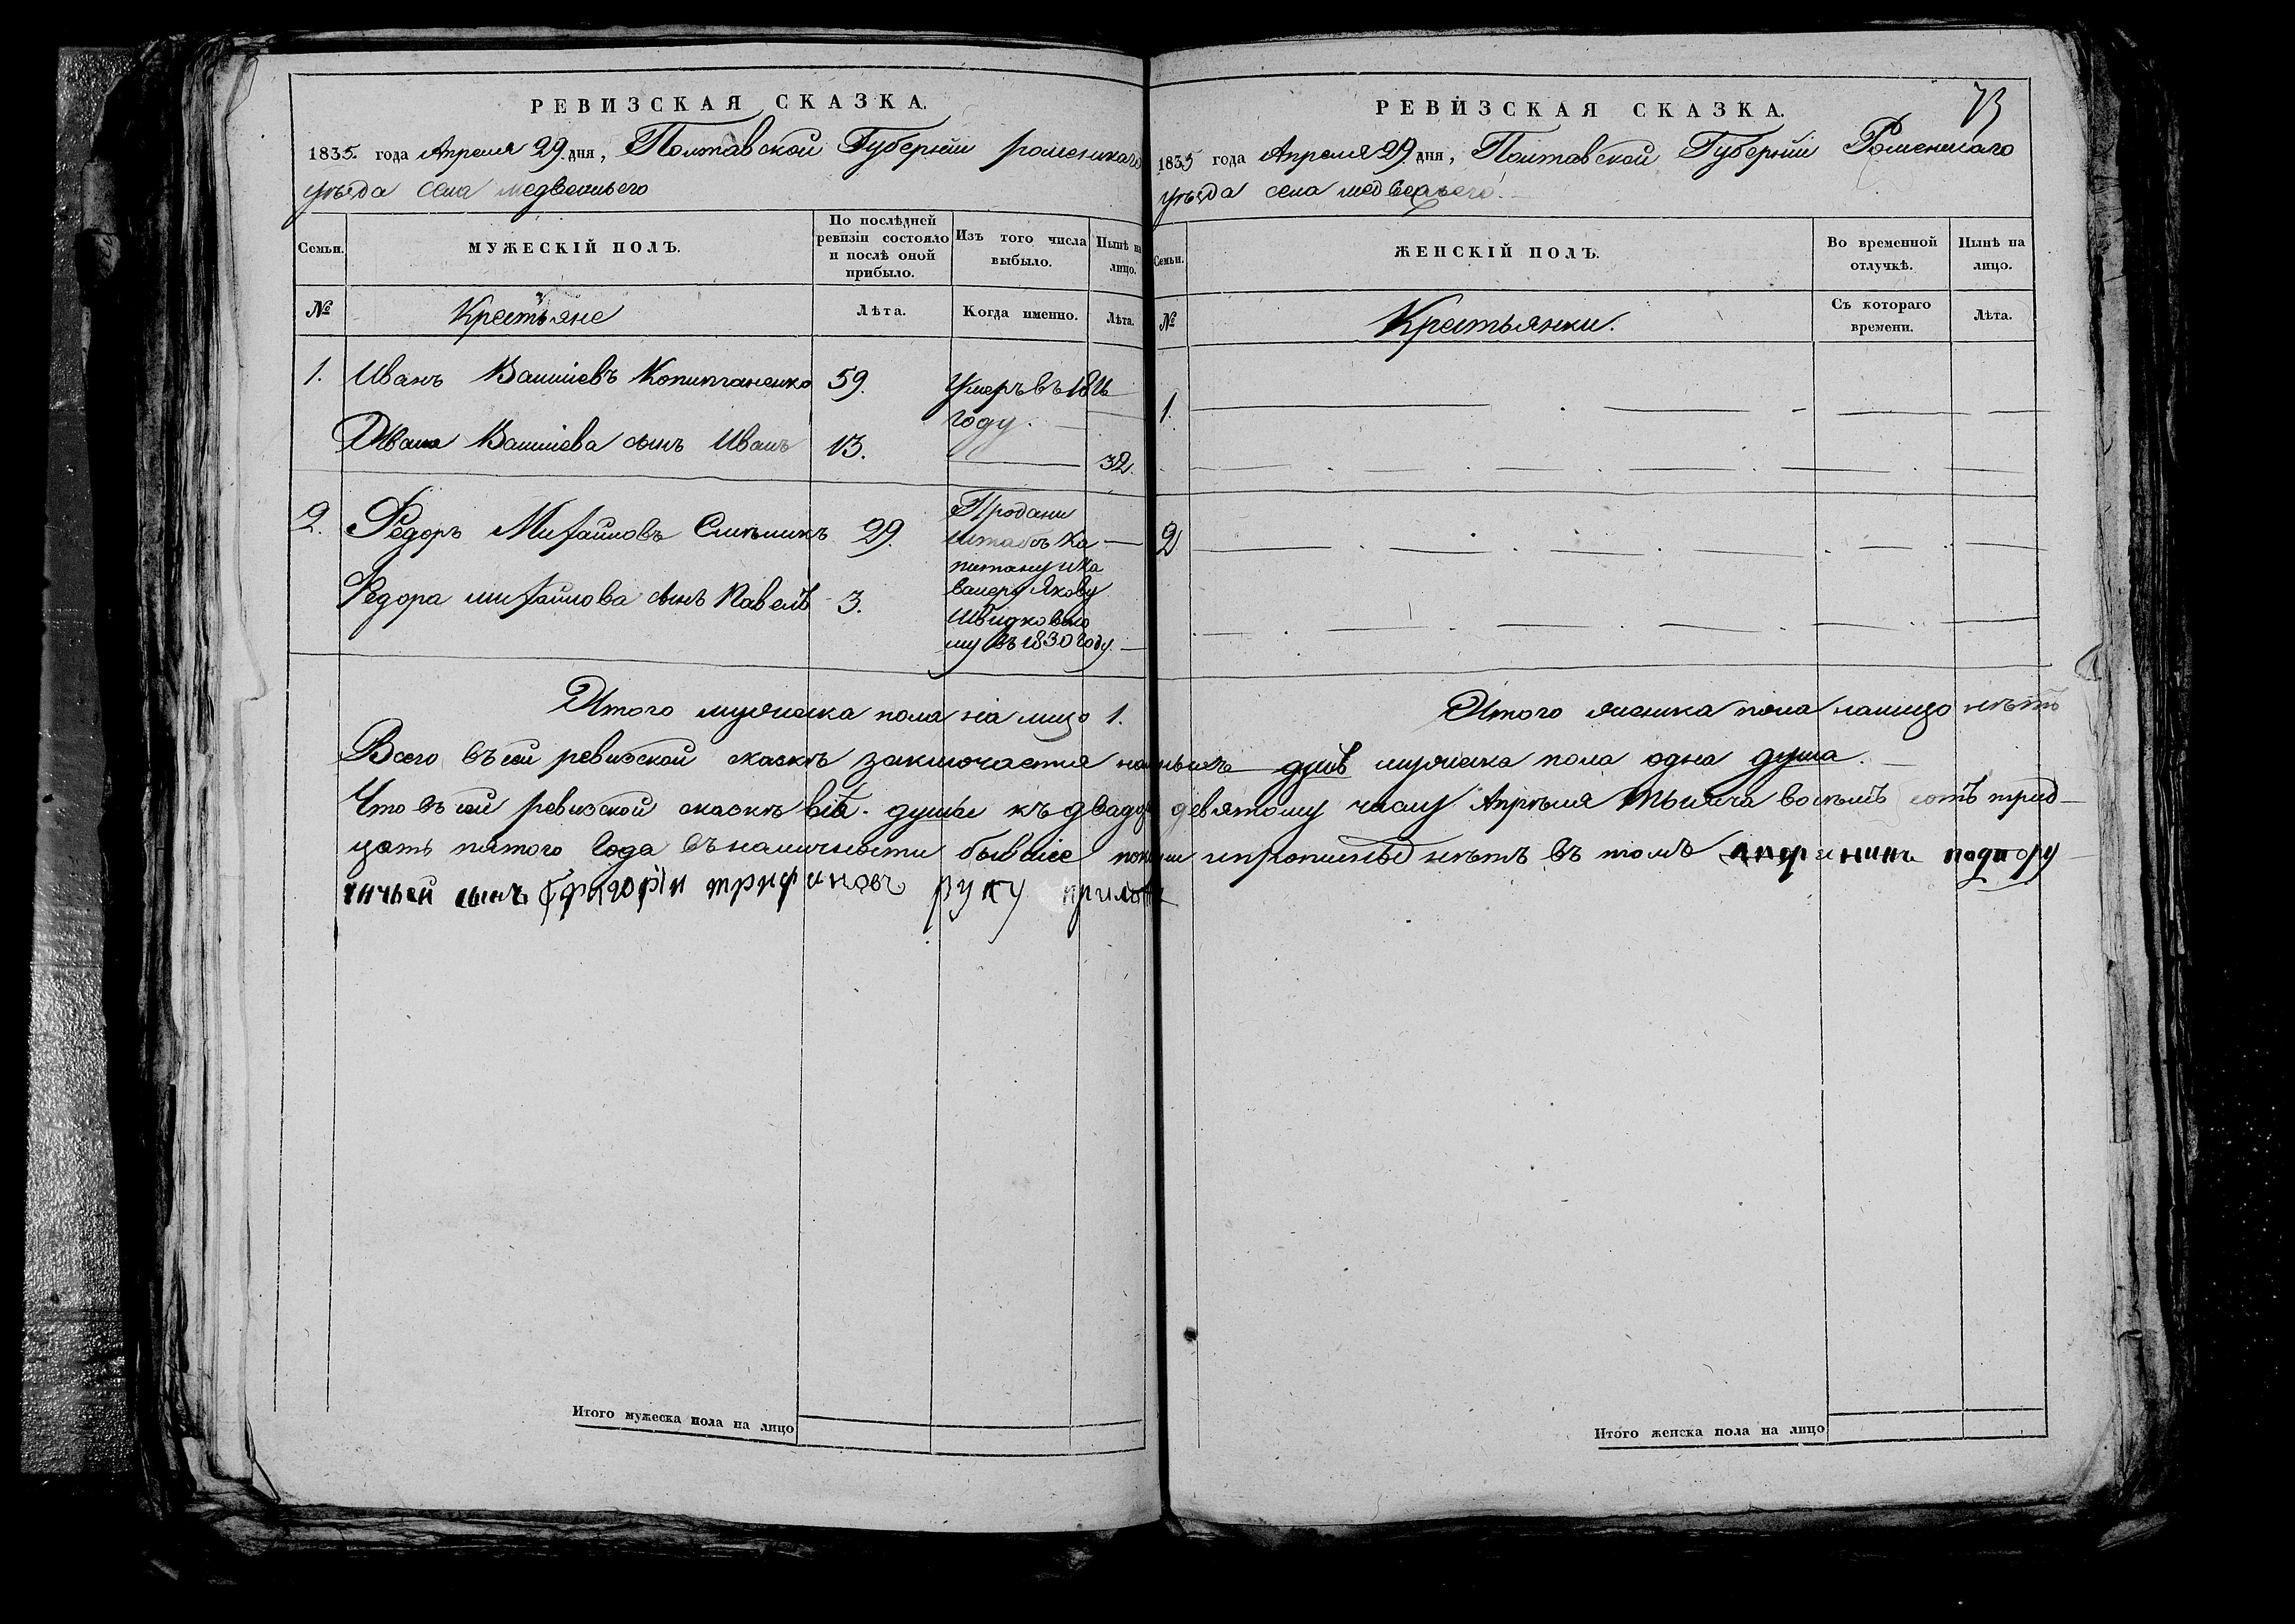 РЕВИЗСКАЯ СКАЗКА.
1835. года Апреля 29. дня, Полтавской Губерніи роменскаго
уѣзда села медвежьего
Семьи.
МУЖЕСКІЙ ПОЛЪ.
По послѣдней ревизіи состояло и послѣ оной прибыло.
Изъ того числа выбыло.
Нынѣ на лицо.
№
Крестьяне
Лѣта.
Когда именно.
Лѣта.
1. Иванъ Копитаненко 59. Умеръ въ 1826
году.
Ивана сынъ Иванъ 13. 32.
2. Федоръ Михайловъ 29. Продани
штабсъ Ка
питану и Ка
валеру Якову
Швидковско
му въ 1830 году.
Федора михайлова сынъ Павелъ 3.
Итого мужеска пола на лицо 1.
Итого мужеска пола на лицо
РЕВИЗСКАЯ СКАЗКА.
73
1835 года Апреля 29 дня, Полтавской Губерніи Роменскаго
уѣзда села медвежьего.
Семьи.
ЖЕНСКІЙ ПОЛЪ.
Во временной отлучкѣ.
Нынѣ на лицо.
№
Крестьянки.
Съ котораго времени.
Лѣта.
1.
2
Итого женска пола на лицо нѣтъ
Всего въ сей ревизской сказкѣ заключается душъ мужеска пола одна душа.
Что въ сей ревизской сказкѣ всѣ души къ двадцать девятому числу Апрѣля тысяча восемъ сотъ трид-
цать пятого года въ наличности бывшіе и прописныхъ нѣтъ въ томъ подпору
чичьей сынъ Григорій трифановъ руку
Итого женска пола на лицо